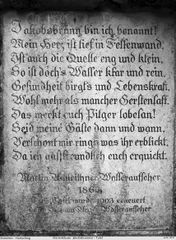 Jakobsbrunn bin ich benannt!
Mein Herz ist tief in Felsenwand,
Ist auch die Quelle eng und klein,
So ist doch's Wasser klar und rein,
Gesundheit birgt's und Lebenskraft,
Wohl mehr als mancher Gerstensaft.
Das merkt euch Pilger lobesan!
Seid meine Gäste dann und wann,
Verschont mir rings was ihr erblickt,
Da ich all euch erquickt.
Martin Wasseraufseher
186
1903 erneuert
Wasseraufseher